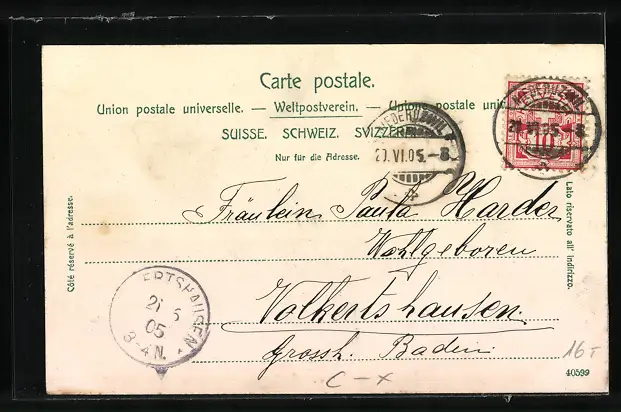 Carte postale.
Union postale universelle. — Weltpostverein. — Unione postale uni
SUISSE. SCHWEIZ. SVIZZERA
Nur für die Adresse.
NIEDERUZWIL
21.VI.05.-8
NIEDERUZWIL
21.VI.05.-8
10
Côté réservé à l'adresse.
Lato riservato all' indirizzo.
Fräulein Paula Harder
Wohlgeboren
Volkertshausen.
Grossh. Baden
ERTSHAUSEN
21 6
05
3-4 N.
C - x
16
40599